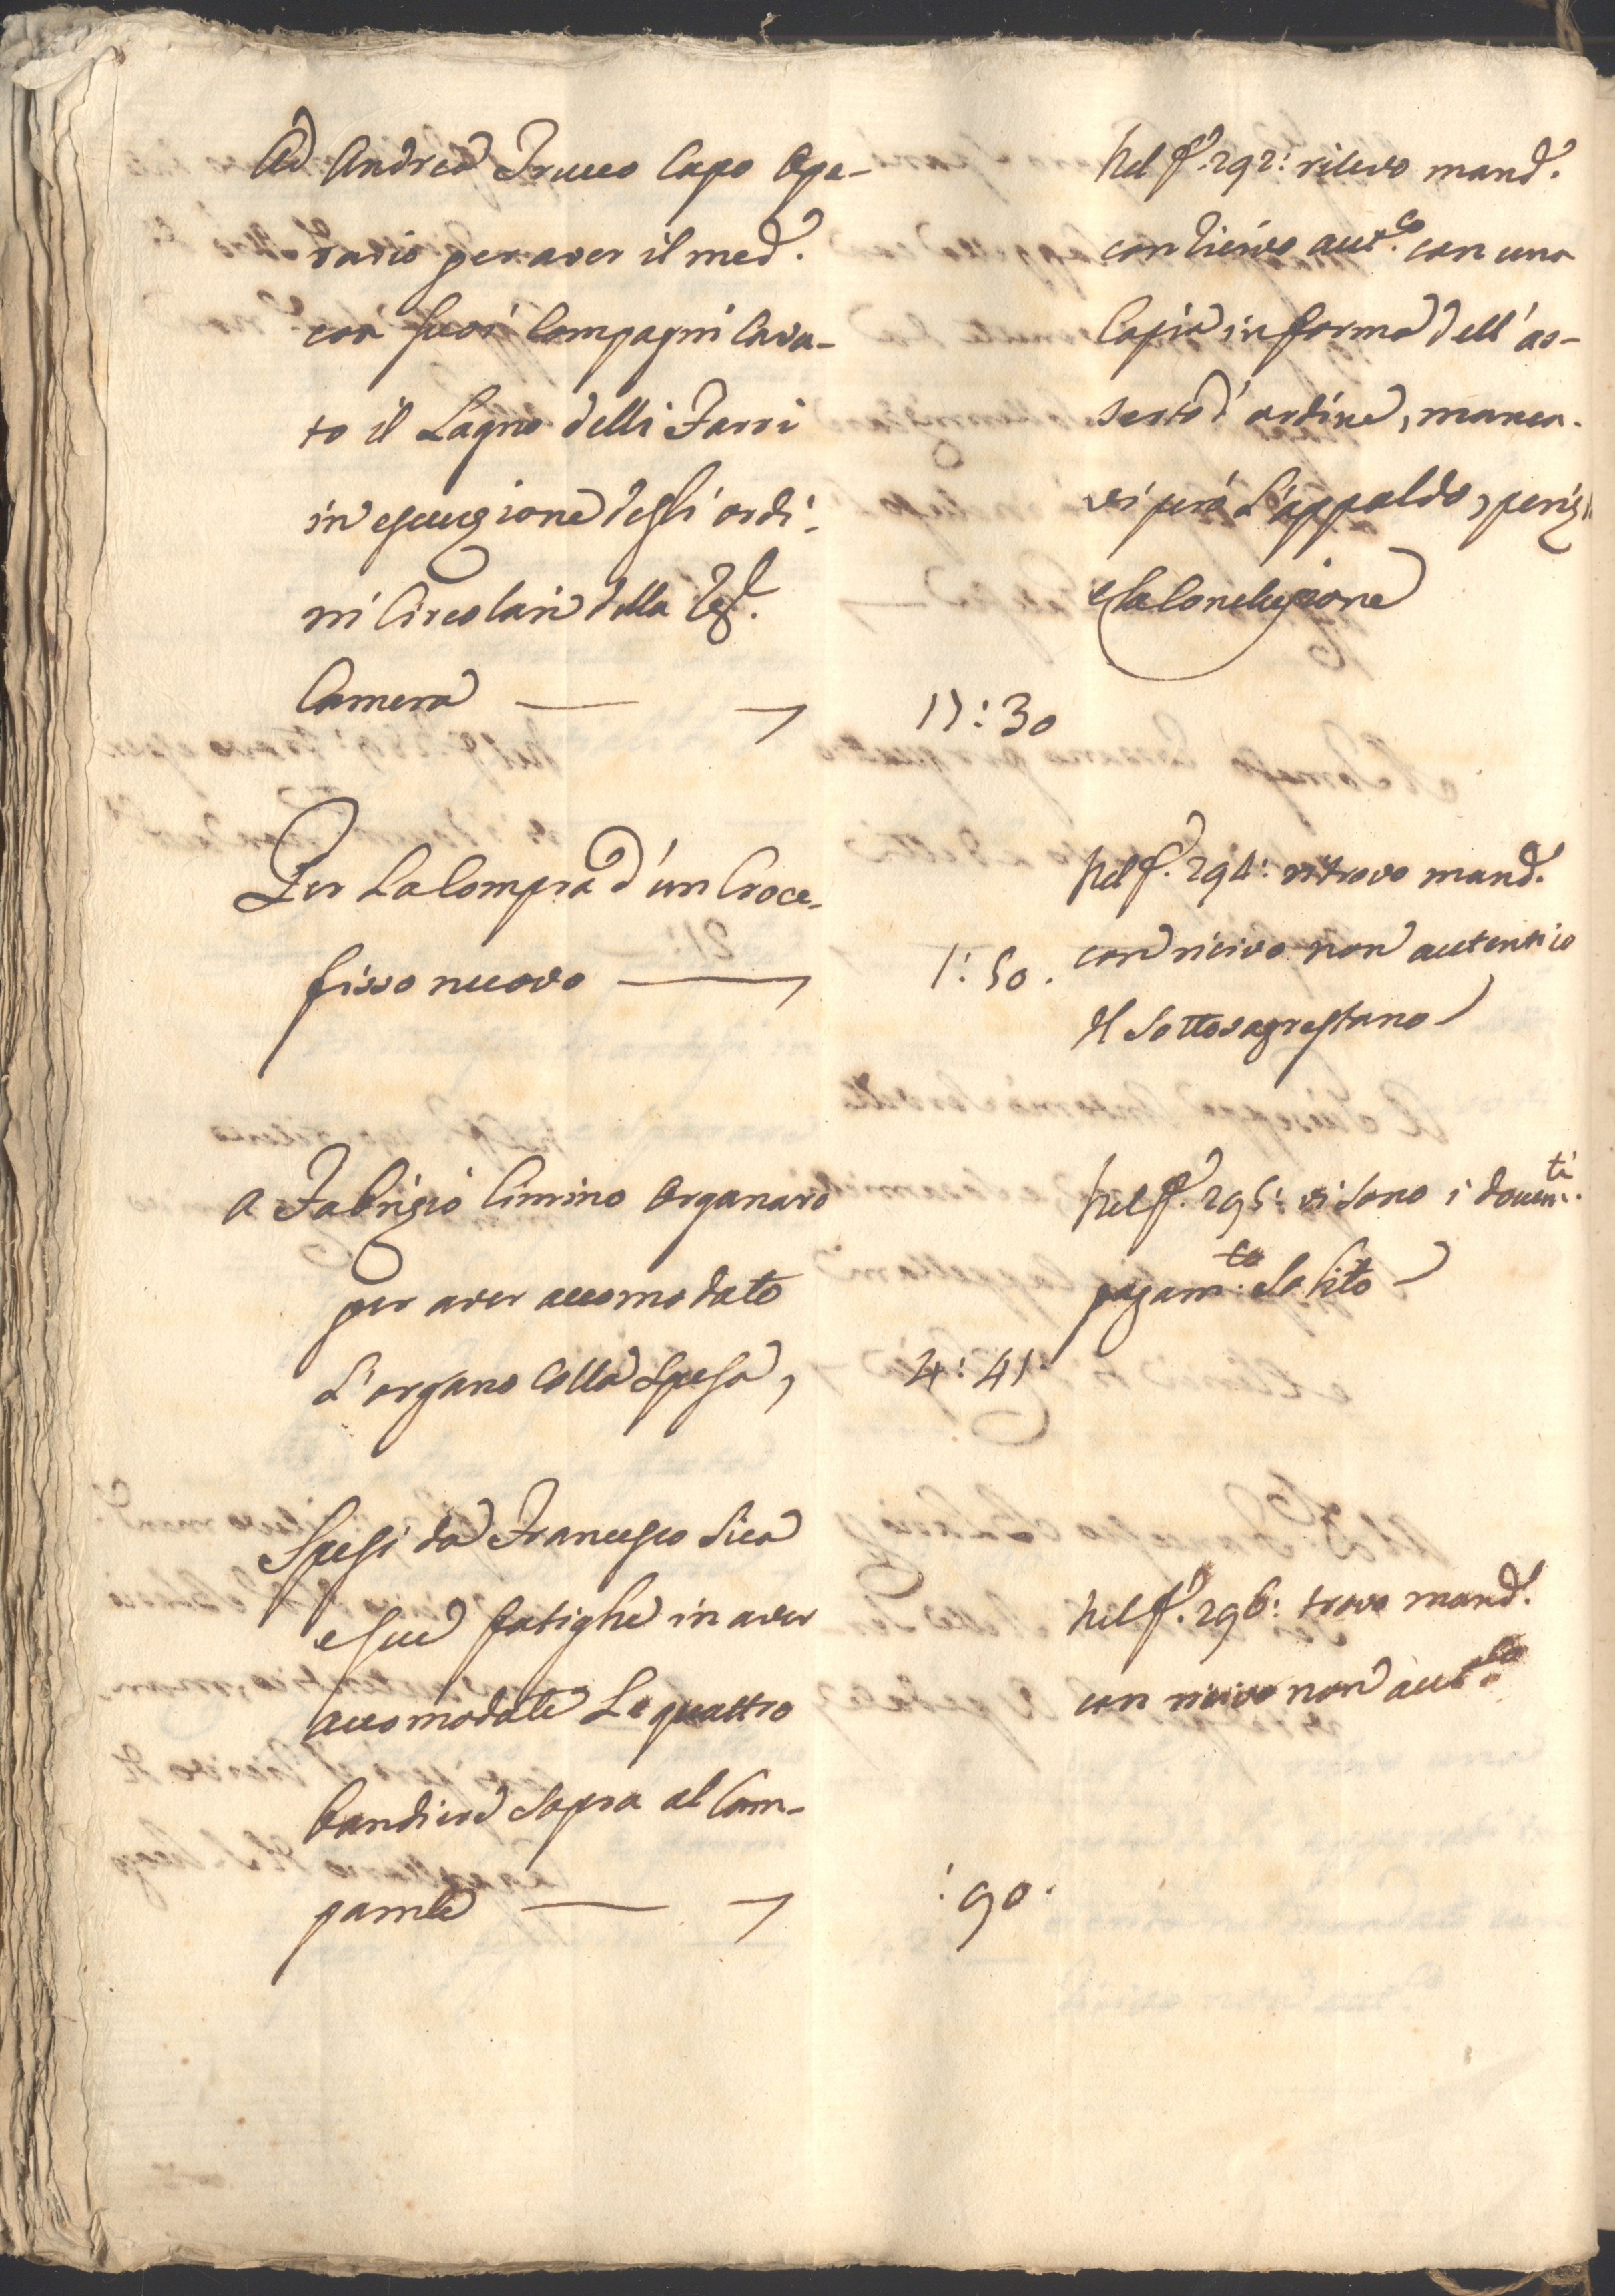 Ad Andrea Trucco Capo Ope-
rario per aver il med.º
con suoi Compagni Cava-
to il Lagno delli Farri
in esecuzione degli ordi-
ni Circolari della Reg.
Camera
17:30
Nel f.º 292: rilevo mand.º
con ricivo aut.co con una
Copia in forma dell'as-
serto d'ordine, manca-
vi però l'appaldo, periz
e la Conclusione
Per la Compra d'un Croce-
fisso nuovo
1:50.
Nel f.º 294: ritrovo mand.º
con ricivo non autentico
del Sottosagrestano
A Fabrizio Cimino Organaro
per aver accomodato
L'organo colla spesa,
4:41
Nel f.º 295: vi sono i docum.ti
pagam.to solito
Spesi da Francesco Sica
e sue fatighe in aver
accomodate Le quattro
bandiere sopra al Cam-
panile
:90.
Nel f.º 296: trovo mand.º
con ricivo non aut.co